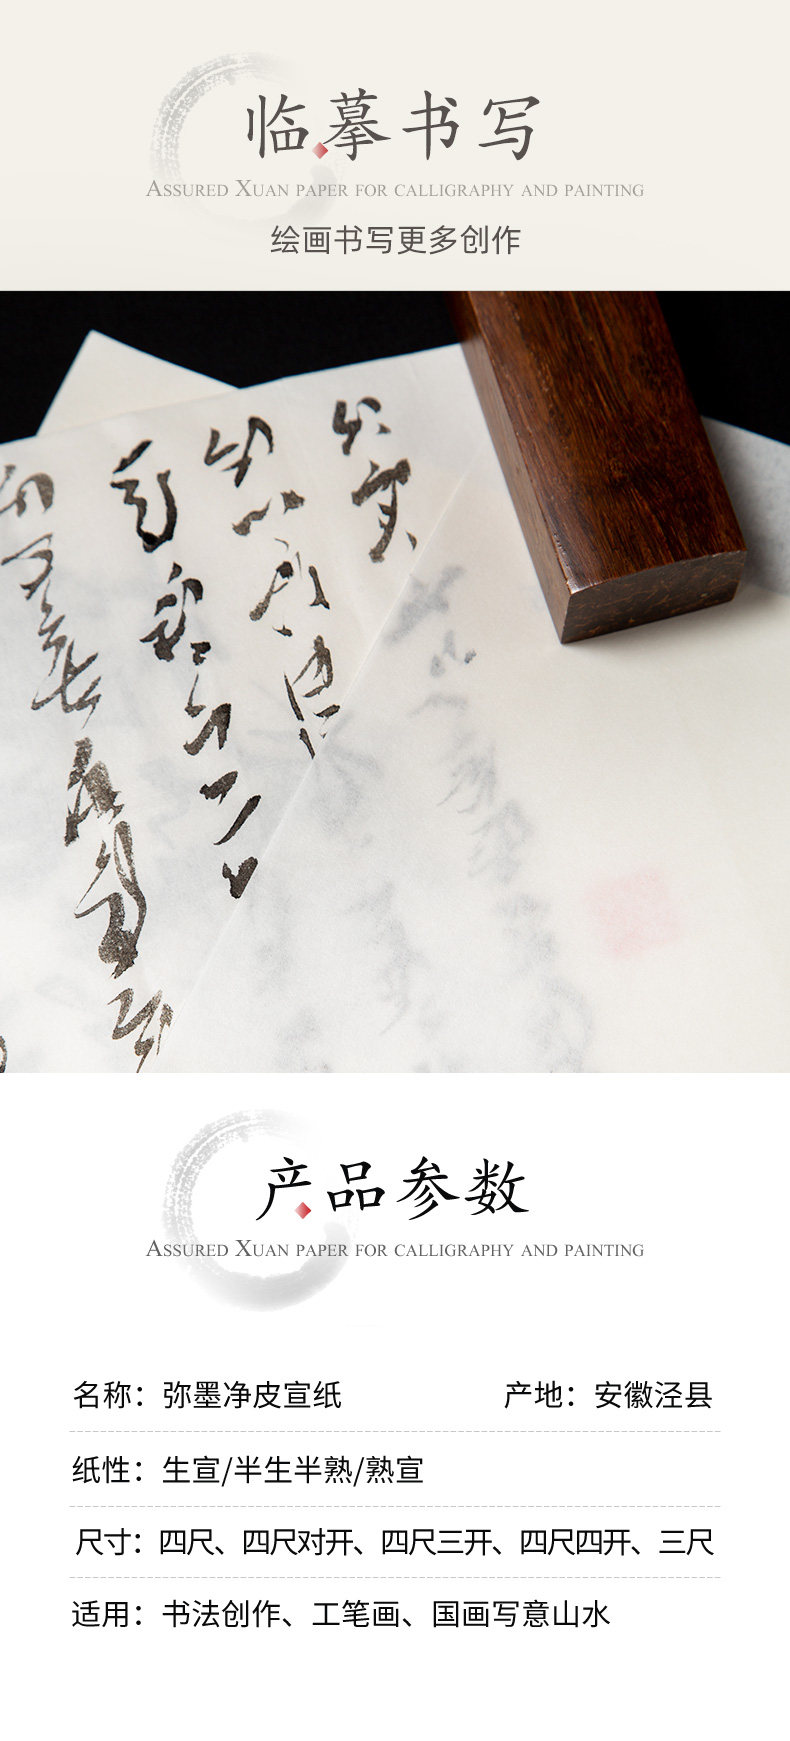 临摹书写
ASSURED XUAN PAPER FOR CALLIGRAPHY AND PAINTING
绘画书写更多创作
产品参数
ASSURED XUAN PAPER FOR CALLIGRAPHY AND PAINTING
名称：弥墨净皮宣纸 产地：安徽泾县
纸性：生宣/半生半熟/熟宣
尺寸：四尺、四尺对开、四尺三开、四尺四开、三尺
适用：书法创作、工笔画、国画写意山水